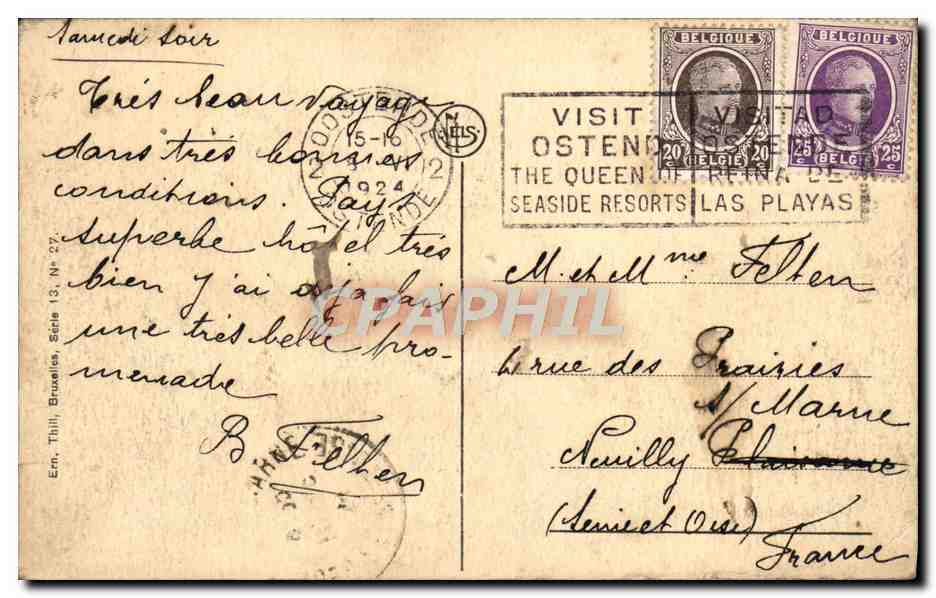 Samedi soir
Très beau voyage
dans très bonnes
conditions. Pays
superbe hôtel très
bien j'ai déjà fait
une très belle pro-
menade
B Felten
Ern. Thill, Bruxelles, Série 13, No 27.
NELS
OOSTENDE
15-16
VI
1924
OSTENDE
BELGIQUE
20c 20c
BELGIË
BELGIQUE
25c 25c
BELGIË
VISIT
OSTEND
THE QUEEN OF
SEASIDE RESORTS
VISITAD
OSTENDE
REINA DE
LAS PLAYAS
M. et Mme Felten
6 rue des Prairies
s/ Marne
Neuilly Plaisance
(Seine et Oise)
France
CPAPHIL